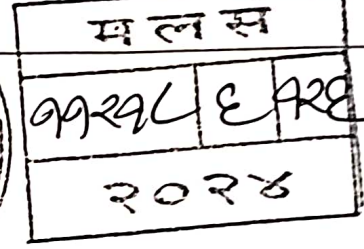 म ल स
११२१८ ६ १२६
२०२४